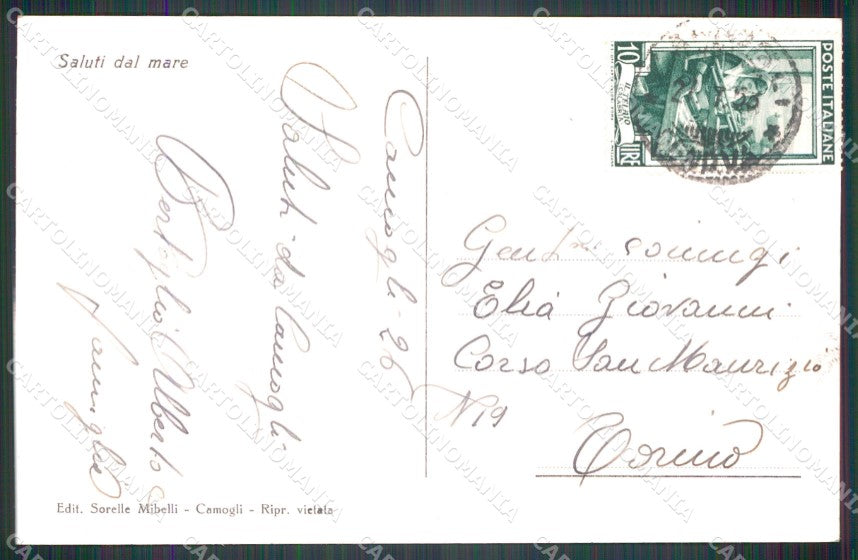 Saluti dal mare
Camogli - 26
Saluti da Camogli
Bertoglio Alberto e
famiglia
Edit. Sorelle Mibelli - Camogli - Ripr. vietata
POSTE ITALIANE
10
LIRE
IL TELAIO
CALABRIA
Gent.mi coniugi
Elia Giovanni
Corso San Maurizio
N 19
Torino
CARTOLINOMANIA